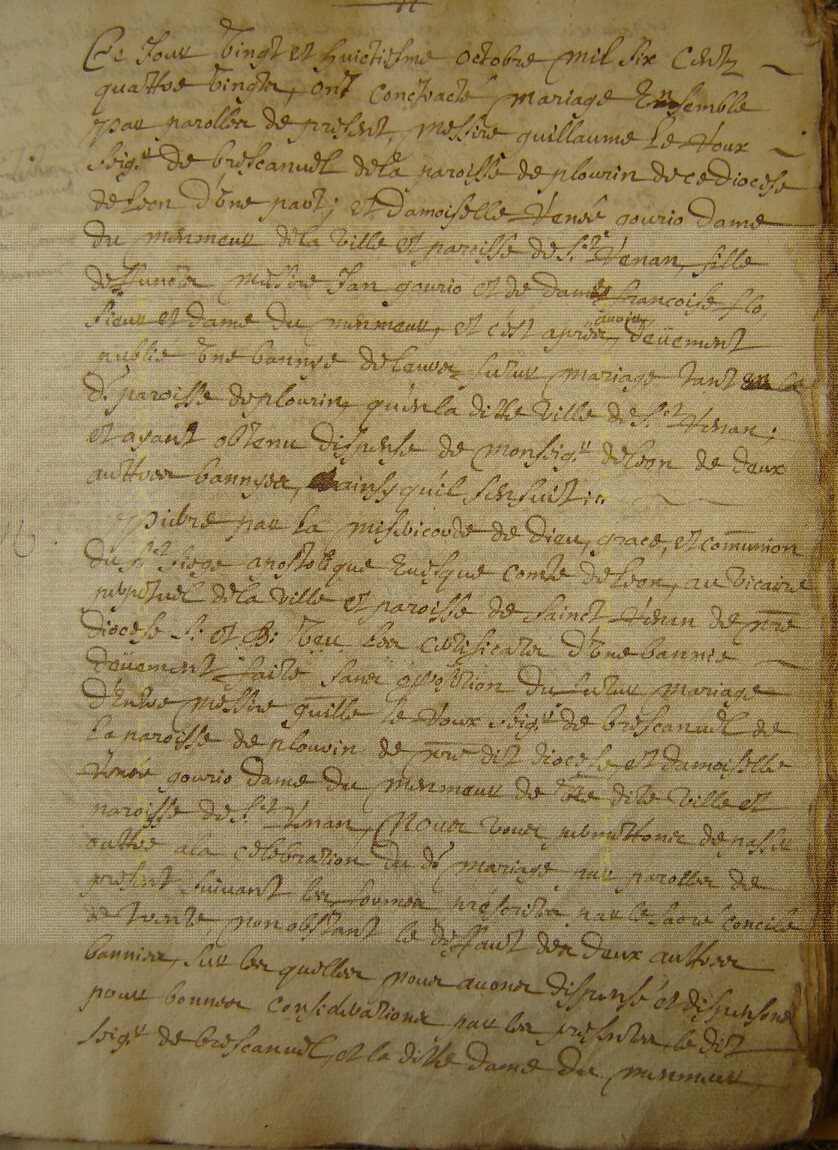 Ce Jour vingt et huictiesme octobre mil six centz
quattre vingts, ont contracté mariage Ensemble
par parolles de present, messire guillaume Le Roux
seigr de brescanuel dela paroisse de plourin de ce diocese
de Leon d'une part; et damoiselle Renée gourio dame
du menmeur dela ville et paroisse de St Renan, fille
deffuncts messire Jan gourio et de dame francoise flo,
sieur et dame du menmeur, et c'est apres avoir deüement
publié une bannye de leurs futur mariage tant en la
de paroisse de plourin, qu'en la ditte ville de St Renan;
et ayant obtenu dispense de monseigr de Leon de deux
auttres bannyes, ainsy qu'il s'ensuit;
pierre par La misericorde de Dieu, grace, et communion
du St siege apostolique Evesque comte de Leon, au vicaire
perpetuel dela ville et paroisse de sainct Renan de nre
diocese S: et B: veu les certificates d'une bannie
deüement faite sans opposition du futur mariage
d'Entre messire guille le Roux seigr de brescanuel de
La paroisse de plourin de nre dit diocese, et damoiselle
Renée gourio dame du menmeur de dite ville et
paroisse de St Renan, Nous vous permettons de passer
outtre a la celebration du dt mariage par parolles de
present suivant les formes préscrites par le sacré concile
de trente nonobstant le deffaut des deux auttres
bannies, sur les quelles nous avons dispensé et dispensons
pour bonnes considerations par les presentes, le dit
seigr de brescanuel, et la ditte dame du menmeur,